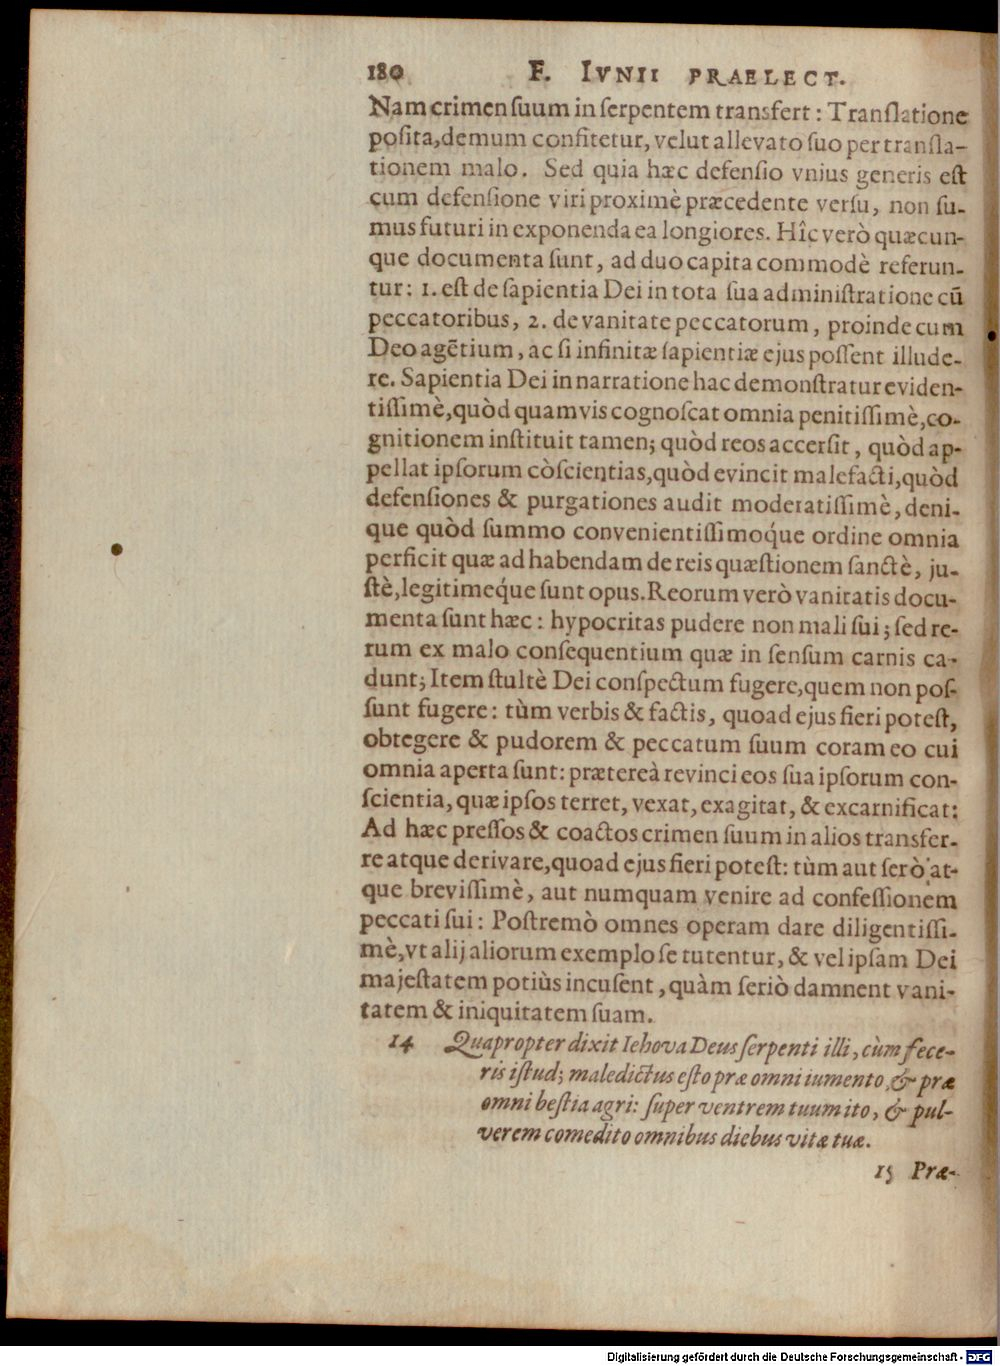 180 F. IVNII PRAELECT.
Nam crimen suum in serpentem transfert : Translatione
posita, demum confitetur, velut allevato suo per transla-
tionem malo. Sed quia hæc defensio vnius generis est
cum defensione viri proximè præcedente versu, non su-
mus futuri in exponenda ea longiores. Hîc verò quæcun-
que documenta sunt, ad duo capita commodè referun-
tur: 1. est de sapientia Dei in tota sua administratione cū
peccatoribus, 2. de vanitate peccatorum, proinde cum
Deo agētium, ac si infinitæ sapientiæ ejus possent illude-
re. Sapientia Dei in narratione hac demonstratur eviden-
tissimè, quòd quamvis cognoscat omnia penitissimè, co-
gnitionem instituit tamen; quòd reos accersit, quòd ap-
pellat ipsorum cōscientias, quòd evincit malefacti, quòd
defensiones & purgationes audit moderatissimè, deni-
que quòd summo convenientissimoq́ue ordine omnia
perficit quæ ad habendam de reis quæstionem sanctè, ju-
stè, legitimeq́ue sunt opus. Reorum verò vanitatis docu-
menta sunt hæc : hypocritas pudere non mali sui ; sed re-
rum ex malo consequentium quæ in sensum carnis ca-
dunt; Item stultè Dei conspectum fugere, quem non pos-
sunt fugere: tùm verbis & factis, quoad ejus fieri potest,
obtegere & pudorem & peccatum suum coram eo cui
omnia aperta sunt: prætereà revinci eos sua ipsorum con-
scientia, quæ ipsos terret, vexat, exagitat, & excarnificat:
Ad hæc pressos & coactos crimen suum in alios transfer-
re atque derivare, quoad ejus fieri potest: tùm aut serò at-
que brevissimè, aut numquam venire ad confessionem
peccati sui : Postremò omnes operam dare diligentissi-
mè, vt alij aliorum exemplo se tutentur, & vel ipsam Dei
majestatem potiùs incusent, quàm seriò damnent vani-
tatem & iniquitatem suam.
14 Quapropter dixit Iehova Deus serpenti illi, cùm fece-
ris istud; maledictus esto præ omni iumento, & præ
omni bestia agri: super ventrem tuum ito, & pul-
verem comedito omnibus diebus vitæ tuæ.
15 Præ-
Digitalisierung gefördert durch die Deutsche Forschungsgemeinschaft - DFG